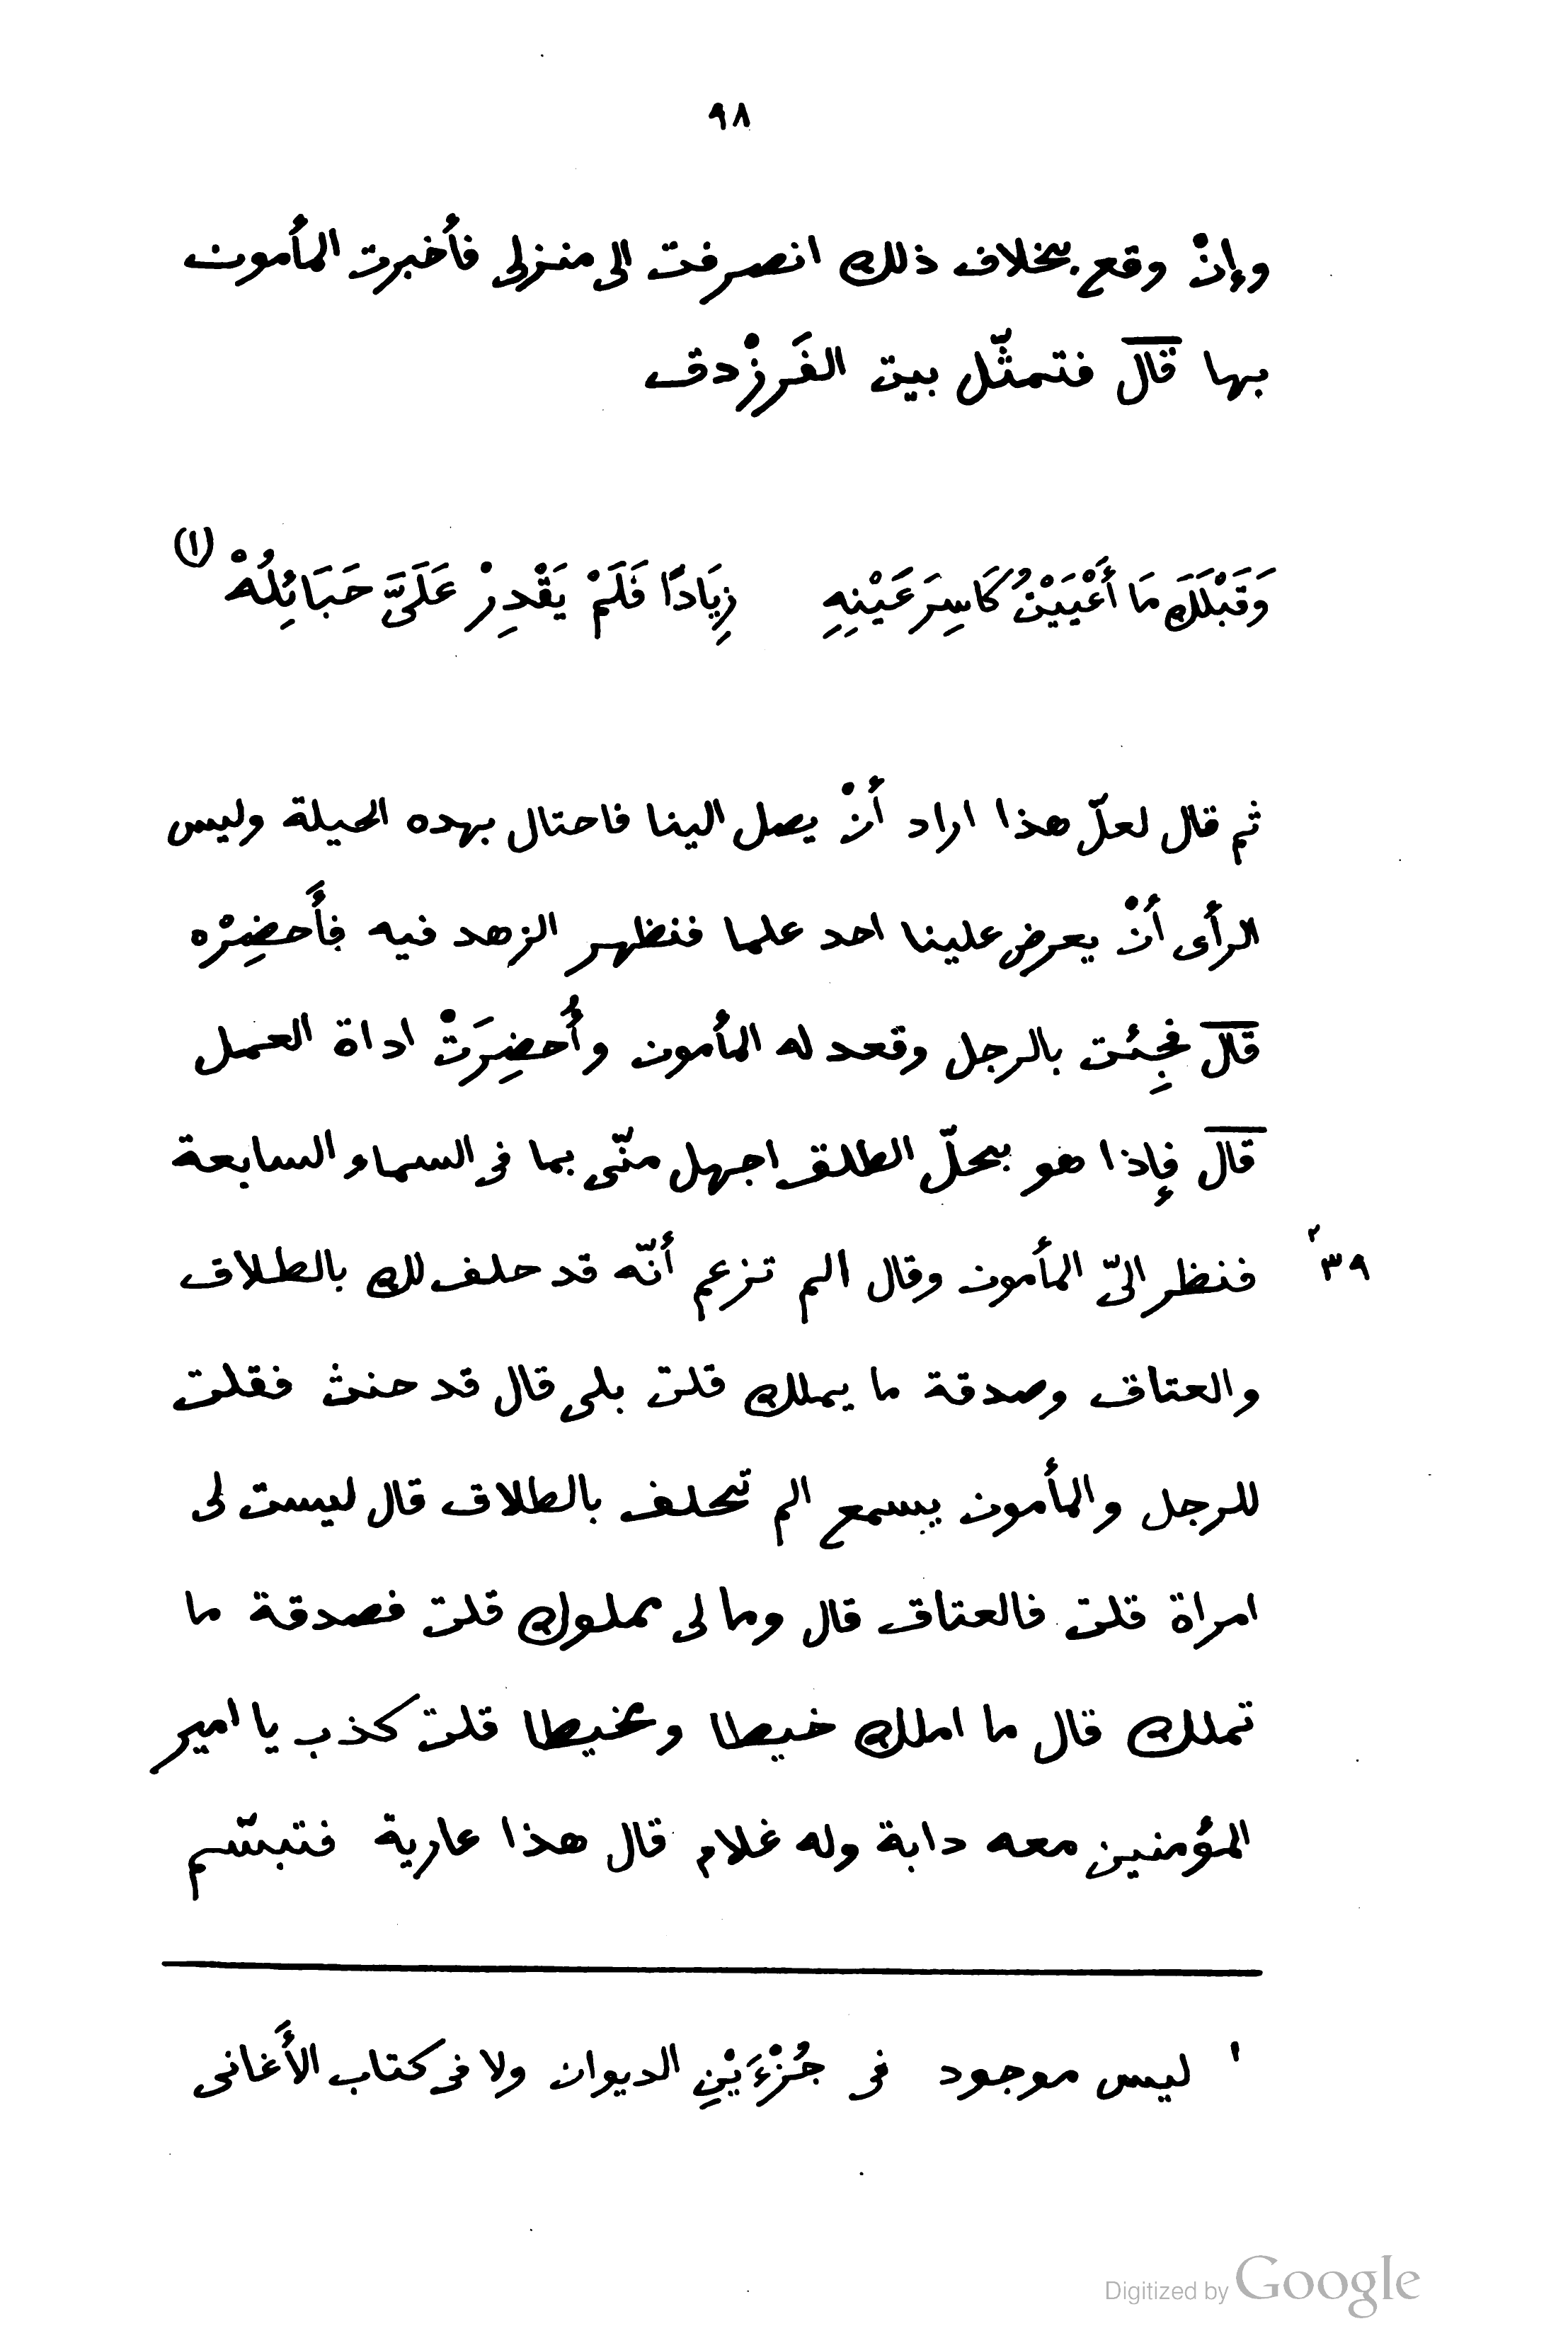 ٩٨
وإنْ وقع بخلاف ذلك انصرفت الى منزلى فأخبرت المأمون
بها قال فتمثّل بيت الفَرزْدق
وَقَبْلَكَ مَا أَعْيَيْتُ كَاسِرَ عَيْنِهِ زِيَادًا فَلَمْ يَقْدِرْ عَلَىَّ حَبَائِلُهْ (١)
ثم قال لعلّ هذا اراد أنْ يصل الينا فاحتال بهده الحيلة وليس
الرأى أنْ يعرض علينا احد علما فنظهر الزهد فيه فأَحضِرْه
قال فجِئت بالرجل وقعد له المأمون وأُحضِرَتْ اداة العمل
قال فإذا هو بحلّ الطلق اجهل منّى بما فى السماء السابعة
٣٩ فنظر الىّ المأمون وقال الم تزعم أنّه قد حلف لك بالطلاق
والعتاق وصدقة ما يملك قلت بلى قال قد حنث فقلت
للرجل والمأمون يسمع الم تحلف بالطلاق قال ليست لى
امراة قلت فالعتاق قال وما لى مملوك قلت فصدقة ما
تملك قال ما املك خيطا ومخيطا قلت كذب يا امير
المؤمنين معه دابة وله غلام قال هذا عارية فتبسّم
١ ليس موجود فى جُزْءَيْنِ الديوان ولا فى كتاب الأَغانى
Digitized by Google